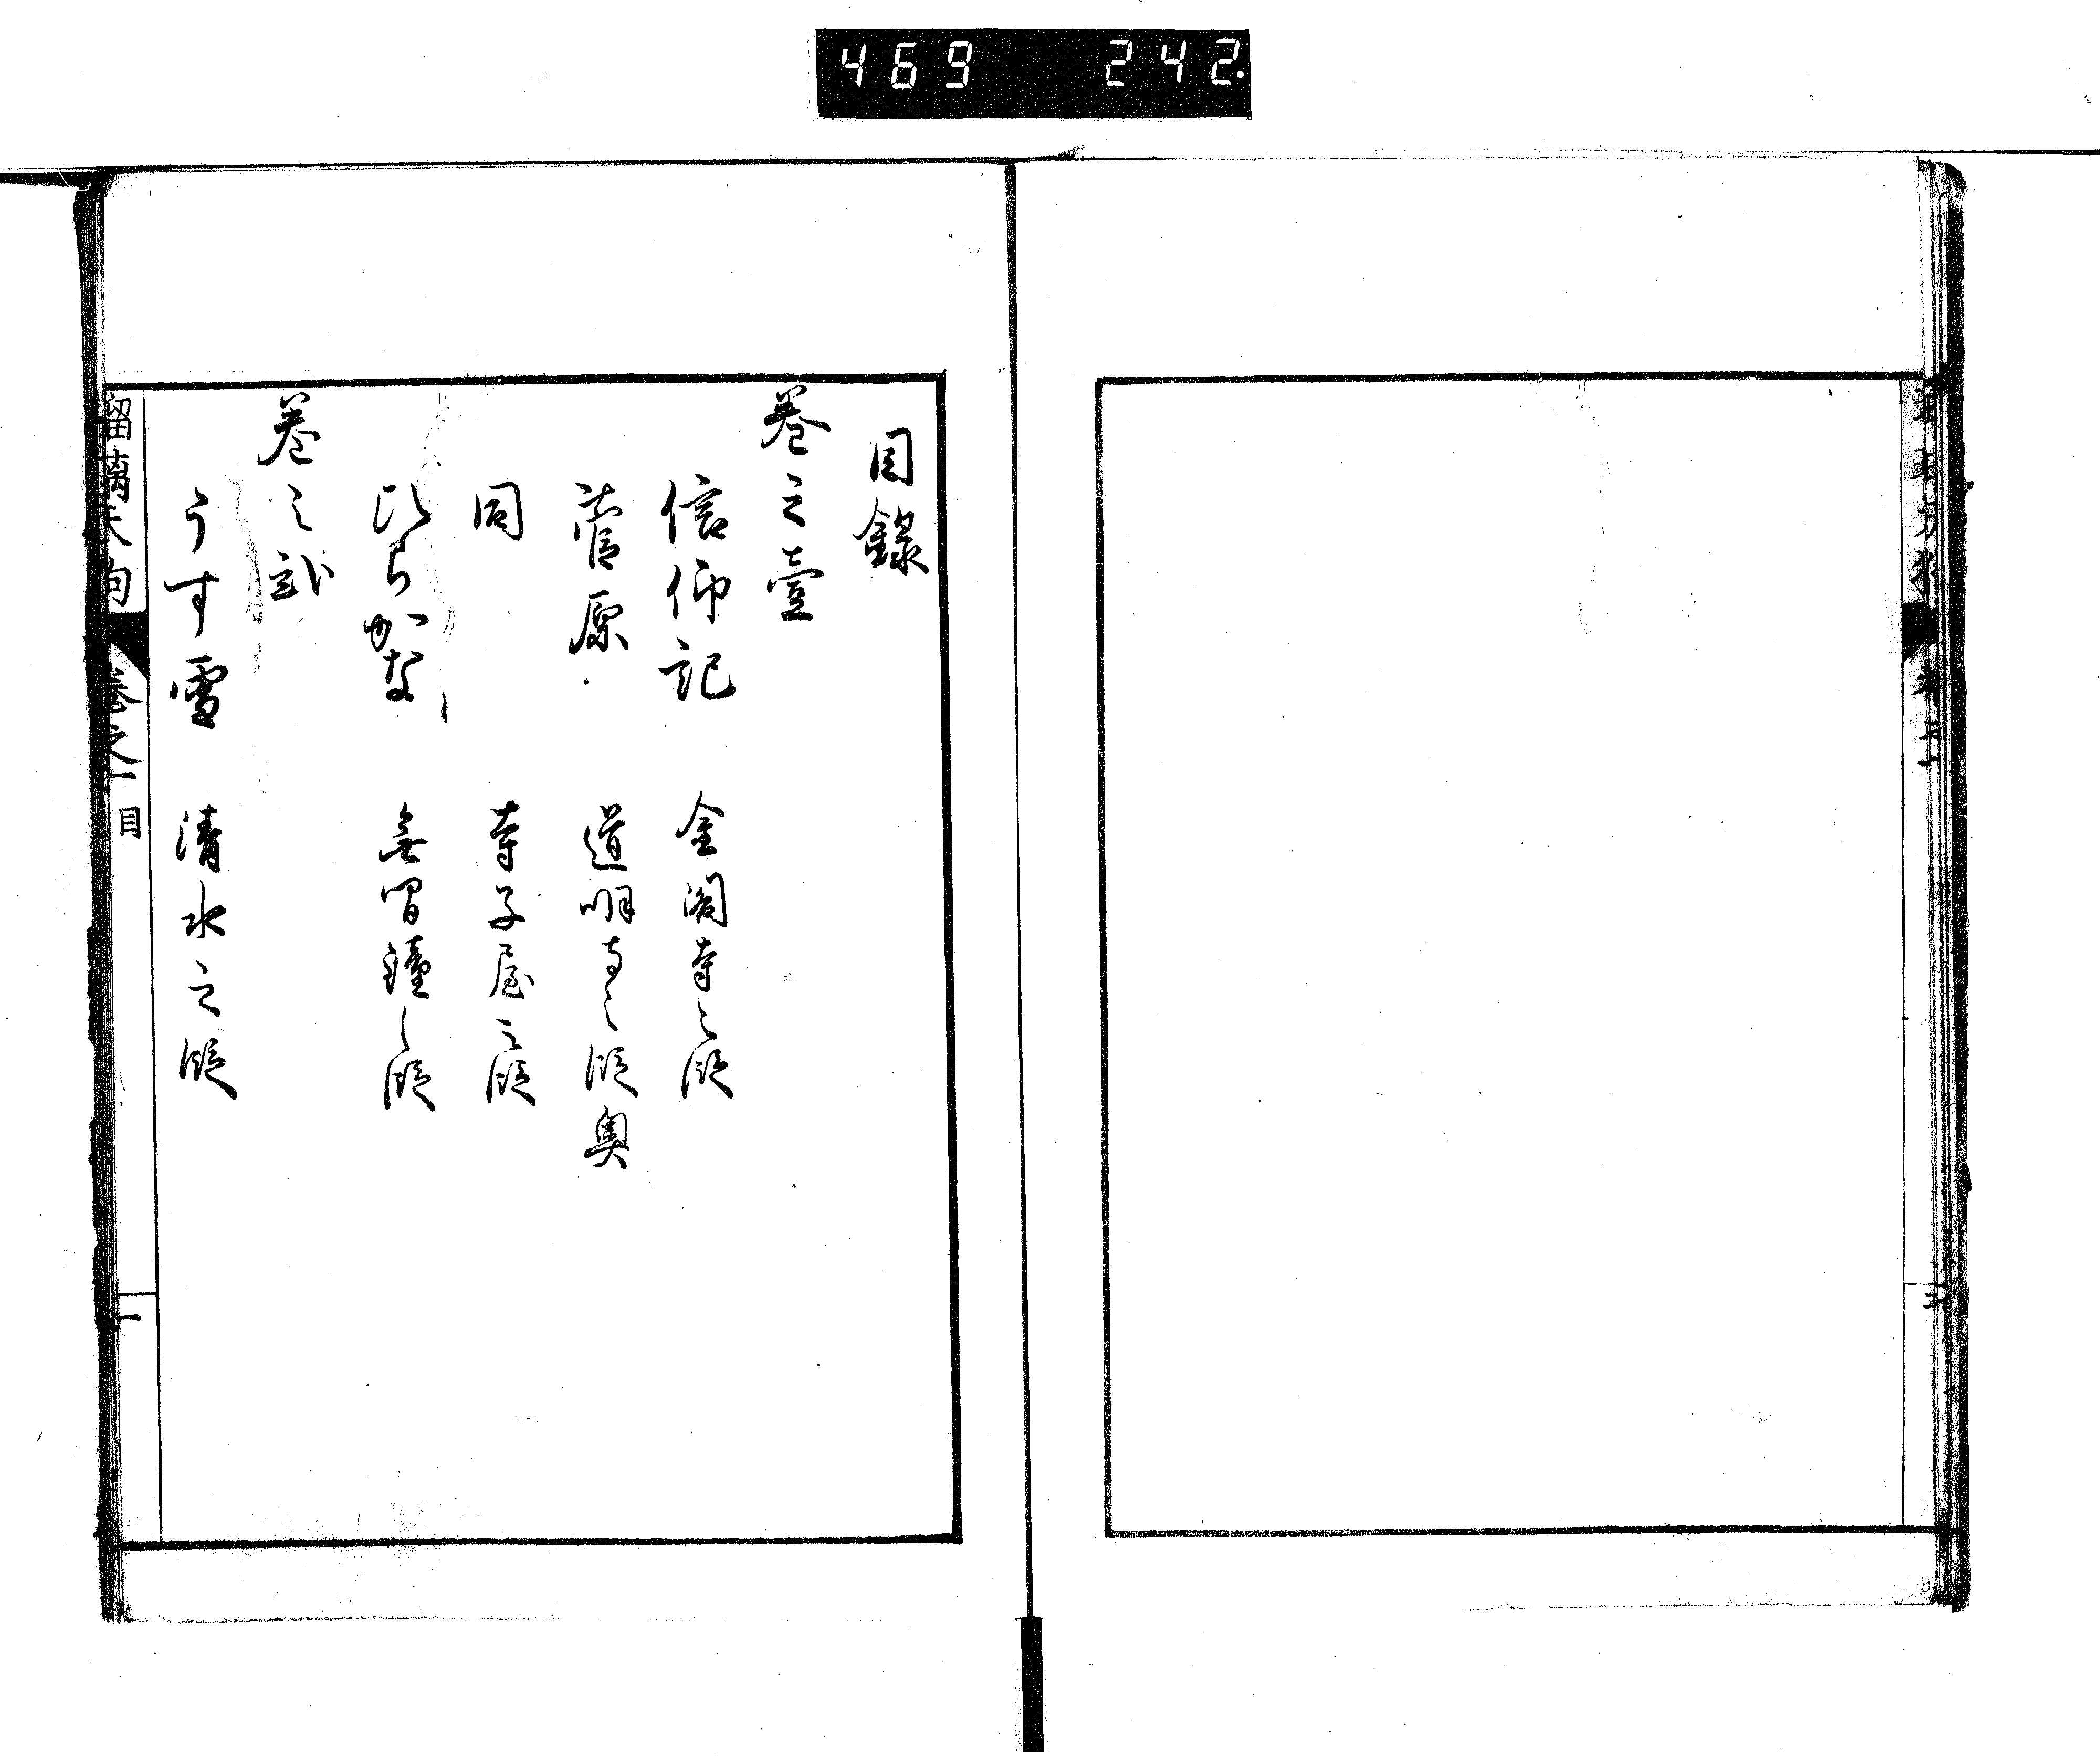 469 242.
目録
巻之壹
信仰記 金閣寺之段
菅原 道明寺之段奥
同 寺子屋之段
ひらかな 無間鐘之段
巻之弐
うす雪 清水之段
瑠璃天狗 巻之一 目 一